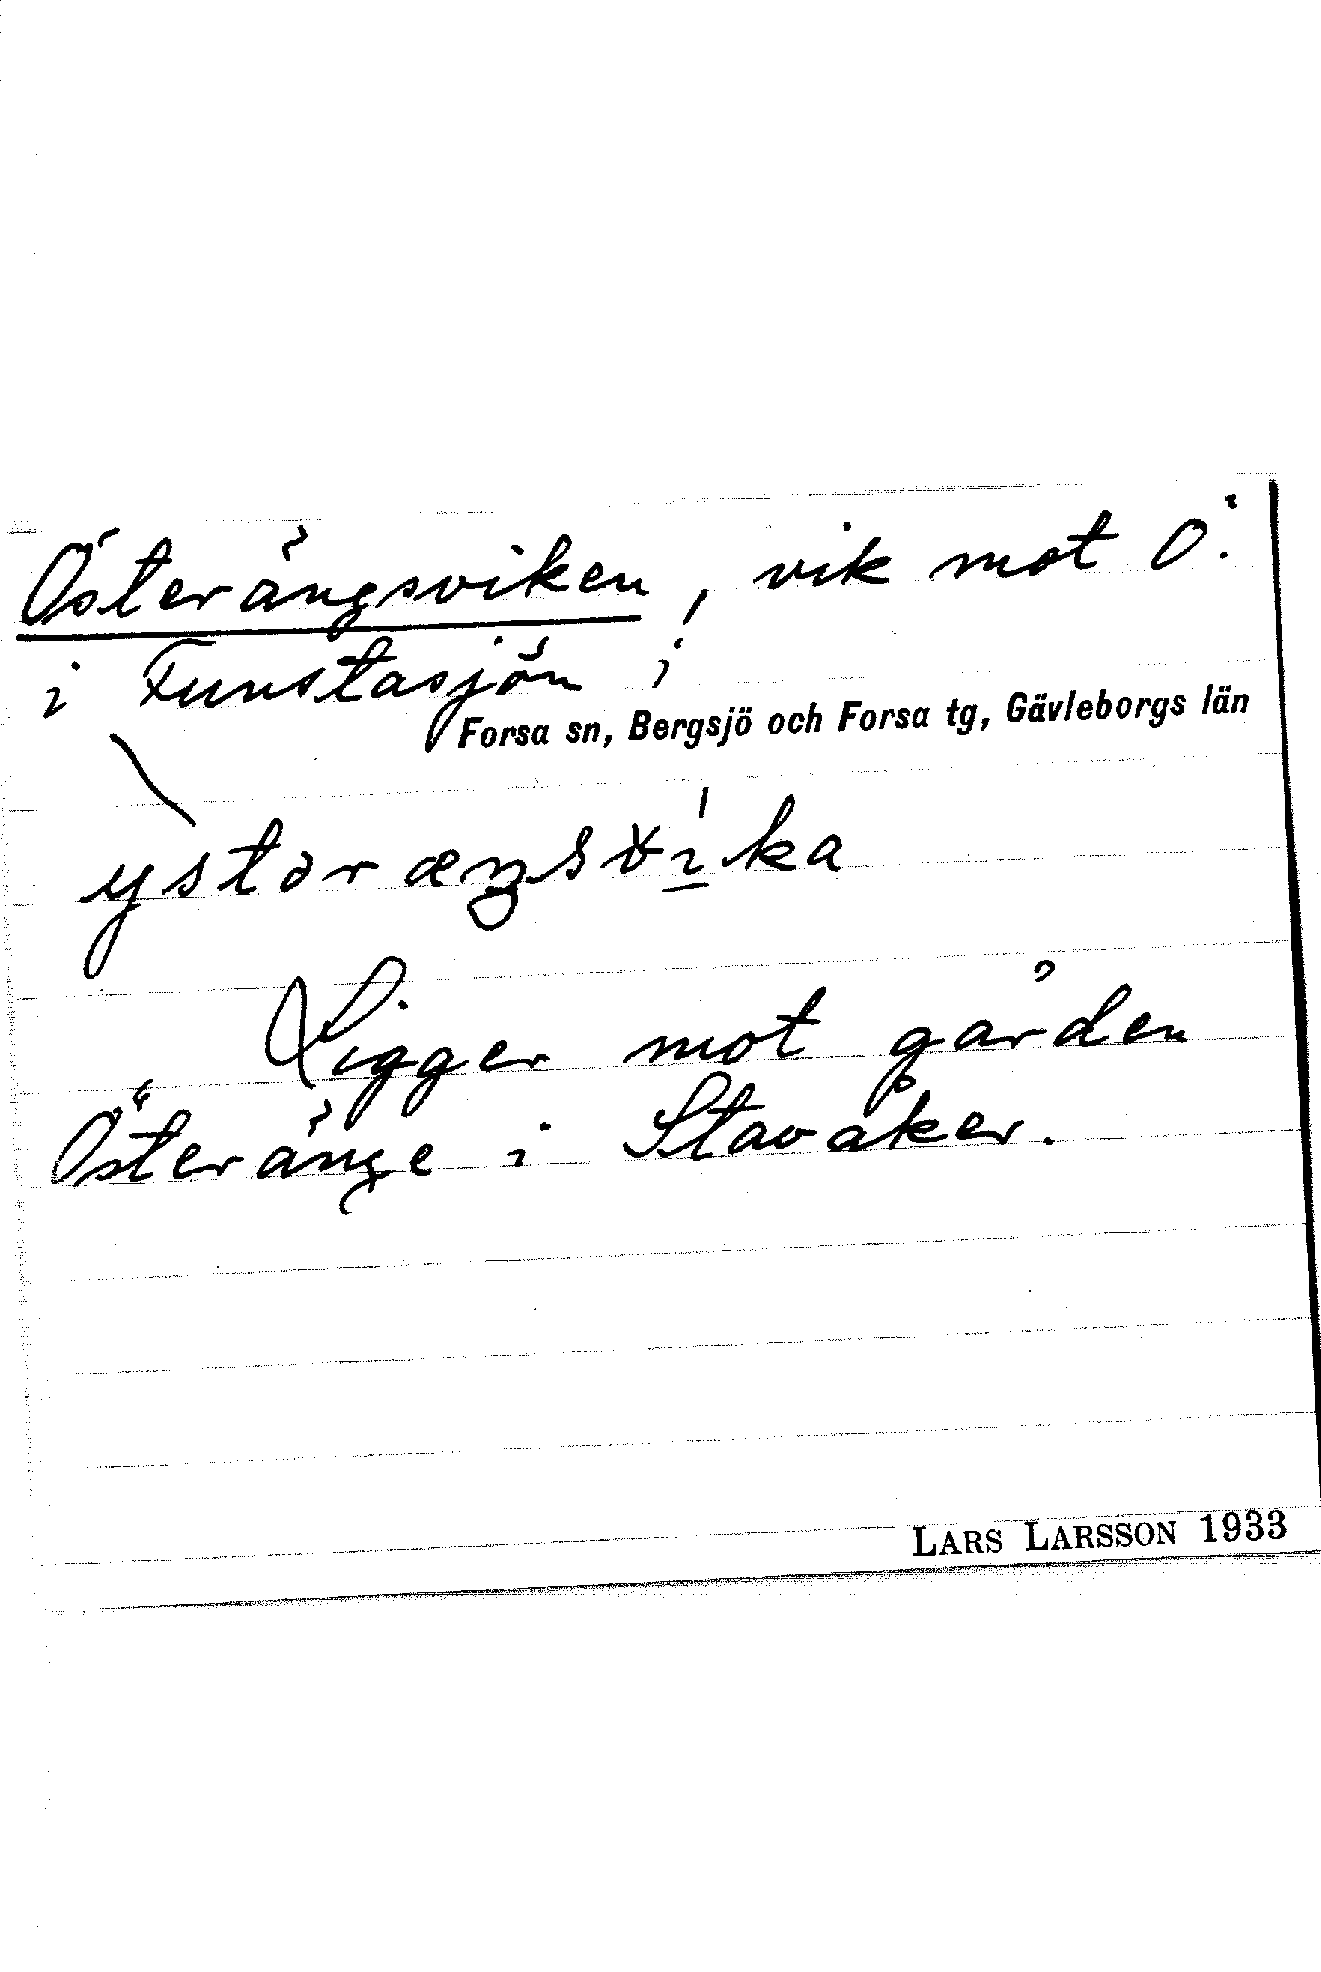 Österängsviken, vik mot Ö.
i Funstasjön i
Forsa sn, Bergsjö och Forsa tg, Gävleborgs län
Ligger mot gården
Österänge i Stavåker.
LARS LARSSON 1933